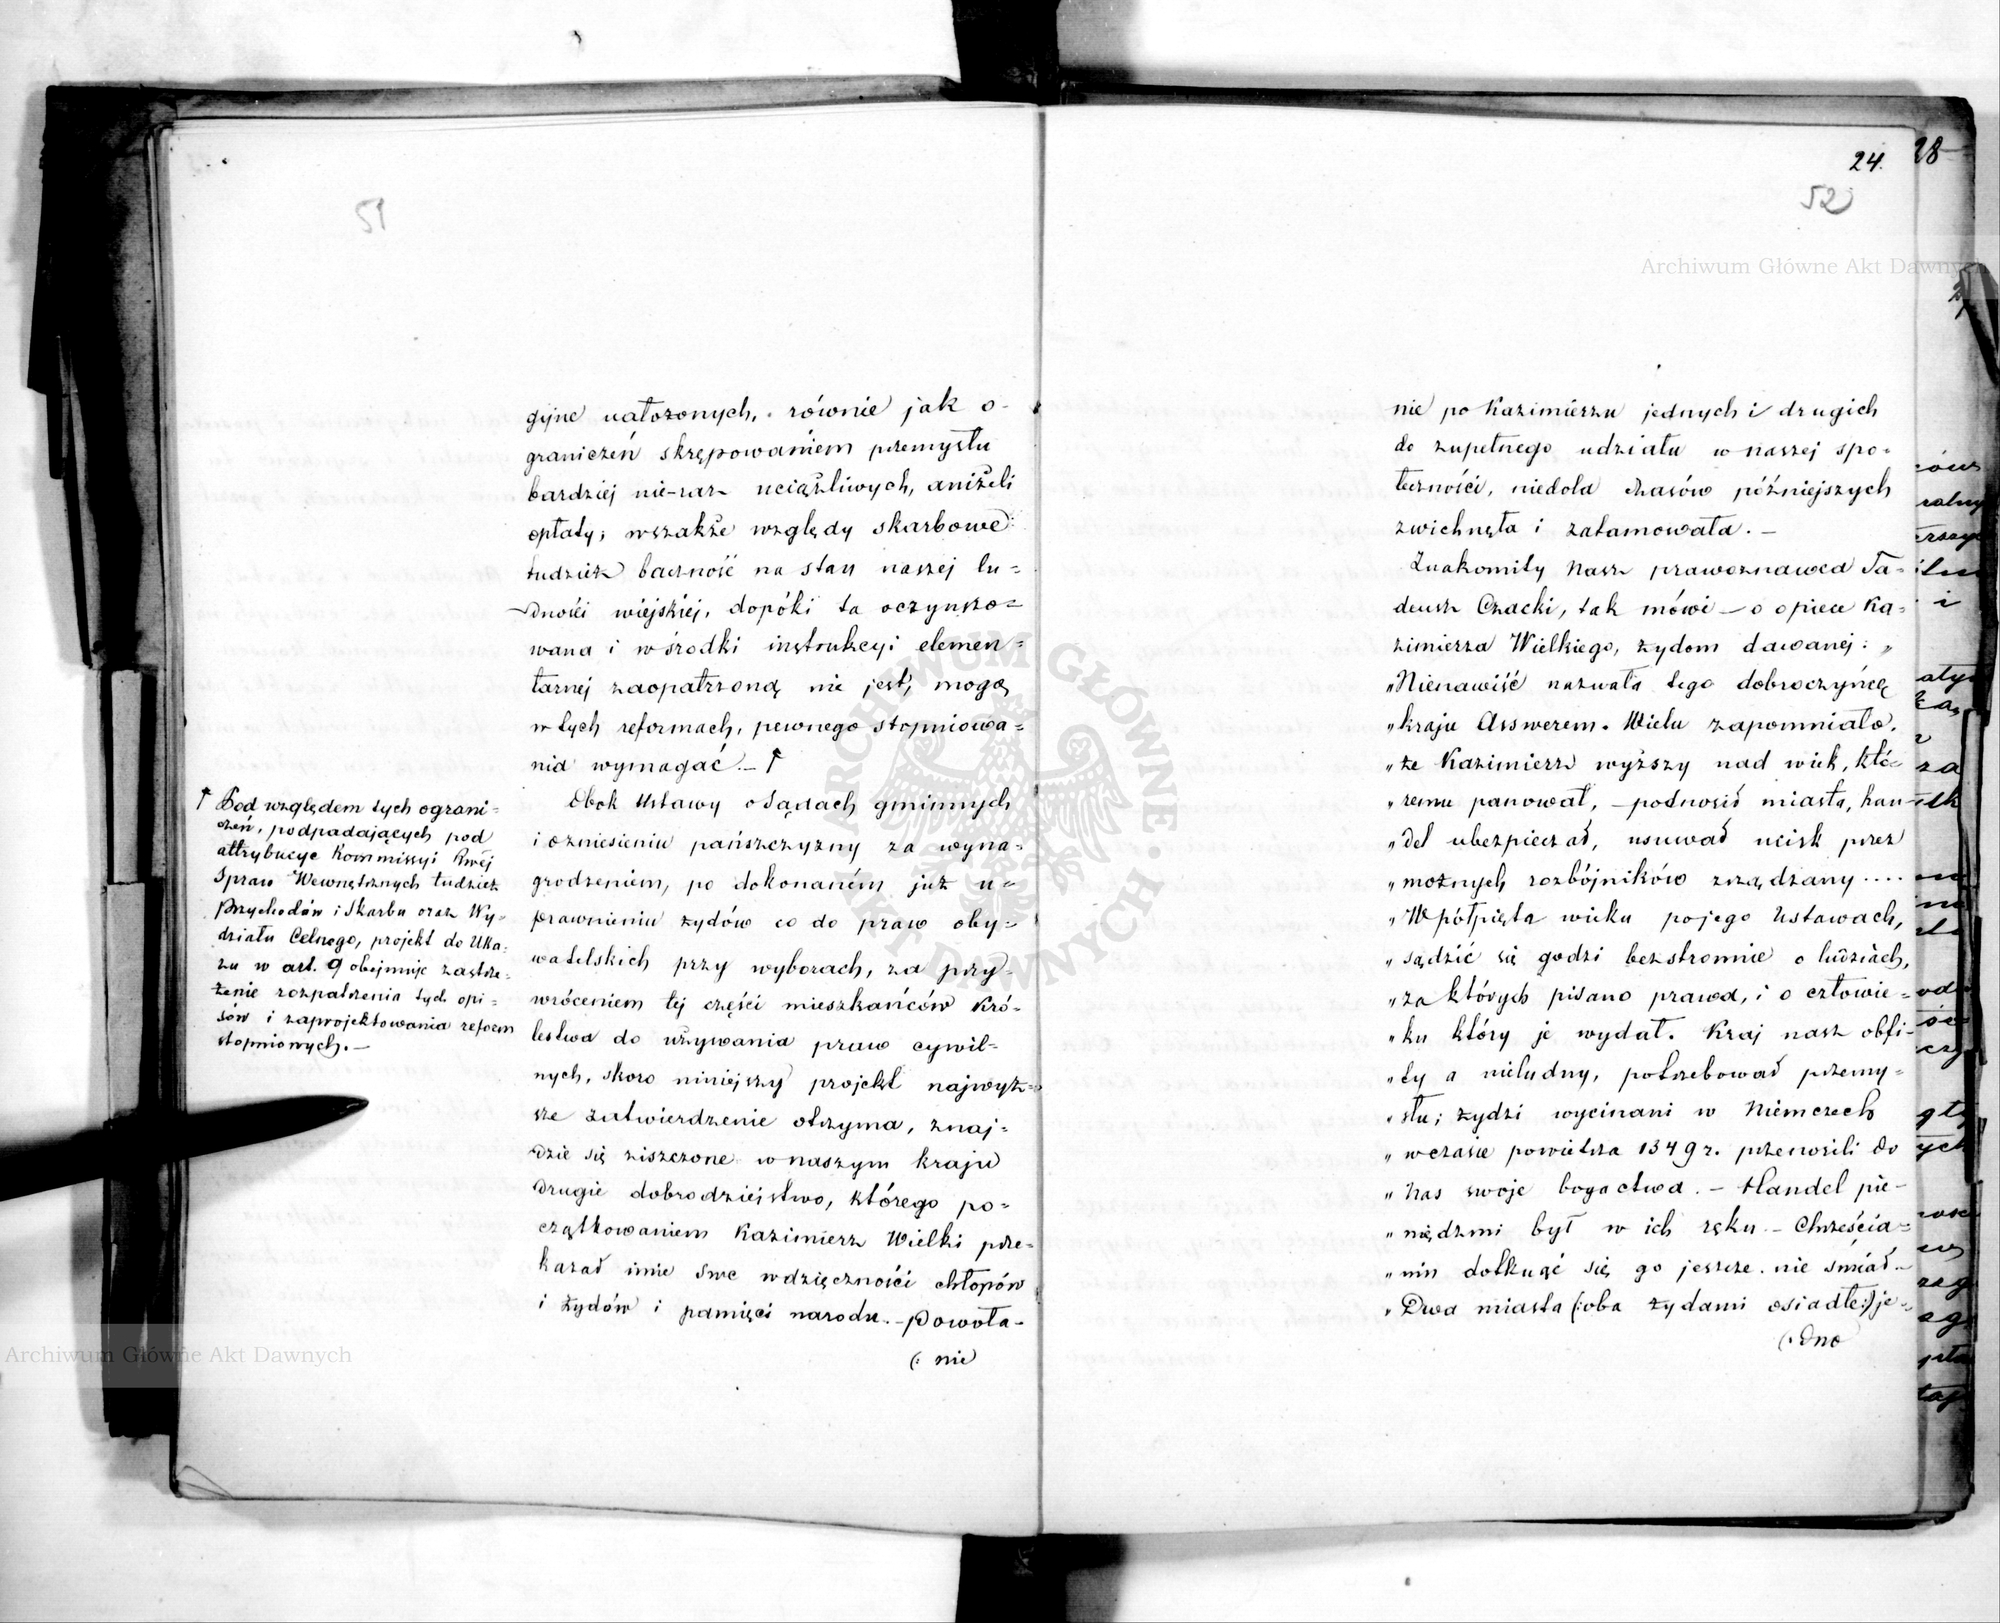 51
gijne nałożonych, równie jak o-
graniczeń skrępowaniem przemysłu
bardziej nie-raz uciążliwych, aniżeli
opłaty; wszakże względy skarbowe
tudzież baczność na stan naszej lu-
dności wiejskiej, dopóki ta oczynszo-
wana i w środki instrukcyi elemen-
tarnej zaopatrzoną nie jest, mogą
w tych reformach, pewnego stopniowa-
nia wymagać. —
Obok Ustawy o Sądach gminnych
i o zniesieniu pańszczyzny za wyna-
grodzeniem, po dokonaném już u-
prawnieniu żydów co do praw oby-
watelskich przy wyborach, za przy-
wróceniem tej części mieszkańców Kró-
lestwa do używania praw cywil-
nych, skoro niniejszy projekt najwyż-
sze zatwierdzenie otrzyma, znaj-
dzie się ziszczone w naszym kraju
drugie dobrodziejstwo, którego po-
czątkowaniem Kazimierz Wielki prze-
kazał imie swe wdzięczności chłopów
i żydów i pamięci narodu. — Powoła-
(: nie
Pod względem tych ograni-
czeń, podpadających pod
attrybucye Kommissyi Rwéj
Spraw Wewnętrznych tudzież
Przychodów i Skarbu oraz Wy-
działu Celnego, projekt do Uka-
zu w art. 9 obejmuje zastrze-
żenie rozpatrzenia tych opi-
sów i zaprojektowania reform
stopniowych. —
24.
52
28
nie po Kazimierzu jednych i drugich
do zupełnego udziału w naszej spo-
łeczności, niedola czasów późniejszych
zwichnęła i zatamowała. —
Znakomity nasz prawoznawca Ta-
deusz Czacki, tak mówi — o opiece Ka-
zimierza Wielkiego, żydom dawanej: „
„Nienawiść nazwała tego dobroczyńcę
„kraju Asswerem. Wielu zapomniało,
„że Kazimierz wyższy nad wiek, któ-
„remu panował, — podnosił miasta, han-
„del ubezpieczał, usuwał ucisk przez
„możnych rozbójników zrządzany ....
„W półpięta wieku po jego Ustawach,
„sądzić się godzi bezstronnie o ludziach,
„za których pisano prawa, i o człowie-
„ku który je wydał. Kraj nasz obfi-
„ty a nieludny, potrzebował przemy-
„słu; żydzi wycinani w Niemczech
„w czasie powietrza 1349 r. przenosili do
„nas swoje bogactwa. — Handel pie-
„niędzmi był w ich ręku — Chrześcia-
„nin dotknąć się go jeszcze nie śmiał —
„Dwa miasta (:oba żydami osiadłe:) je-
(: dno
Archiwum Główne Akt Dawnych
Archiwum Główne Akt Dawnych
ARCHIWUM GŁÓWNE AKT DAWNYCH